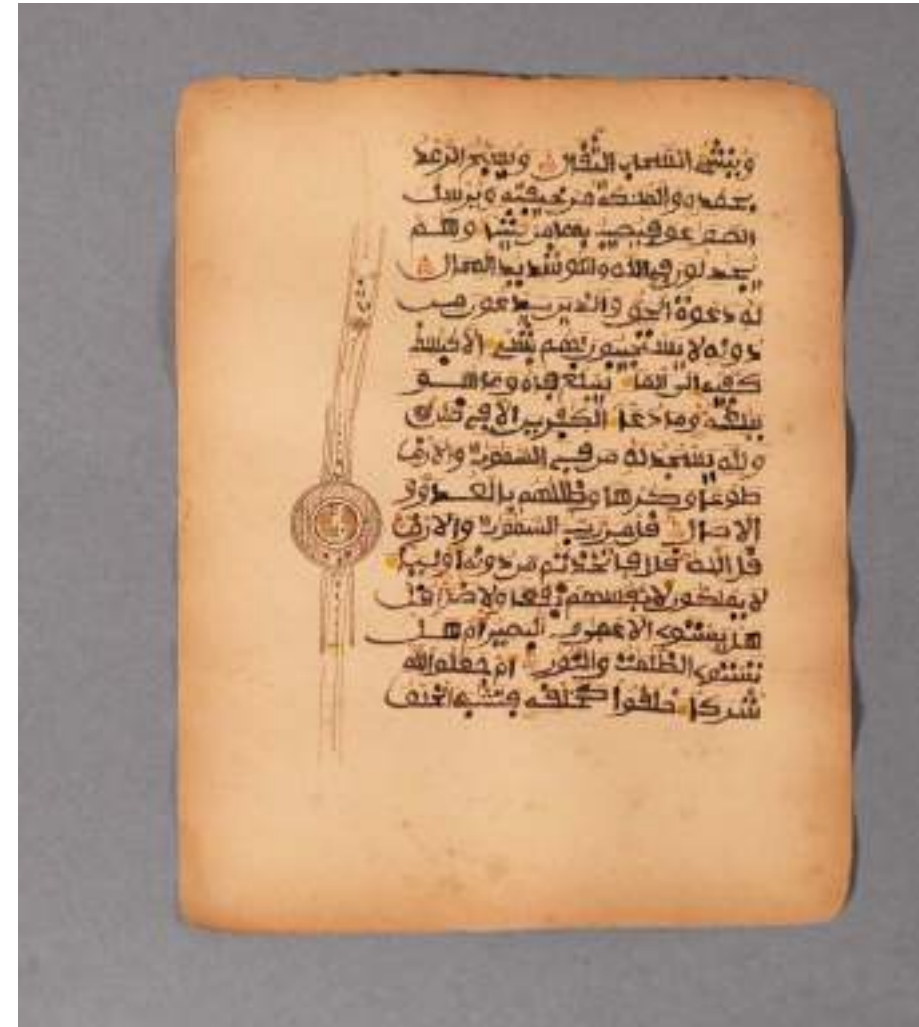 وينشئ السحاب الثقال ويسبح الرعد
بحمده والملئكة من خيفته ويرسل
الصوعق فيصيب بها من يشاء وهم
يجدلون في الله وهو شديد المحال
له دعوة الحق والذين يدعون من
دونه لا يستجيبون لهم بشيء الا كبسط
كفيه الى الماء ليبلغ فاه وما هو
ببلغه وما دعاء الكفرين الا في ضلل
ولله يسجد له من في السموت والارض
طوعا وكرها وظللهم بالغدو و
الاصال قل من رب السموت والارض
قل الله قل افاتخذتم من دونه اولياء
لا يملكون لانفسهم نفعا ولا ضرا قل
هل يستوي الاعمى والبصير ام هل
تستوي الظلمت والنور ام جعلوا لله
شركاء خلقوا كخلقه فتشبه الخلق